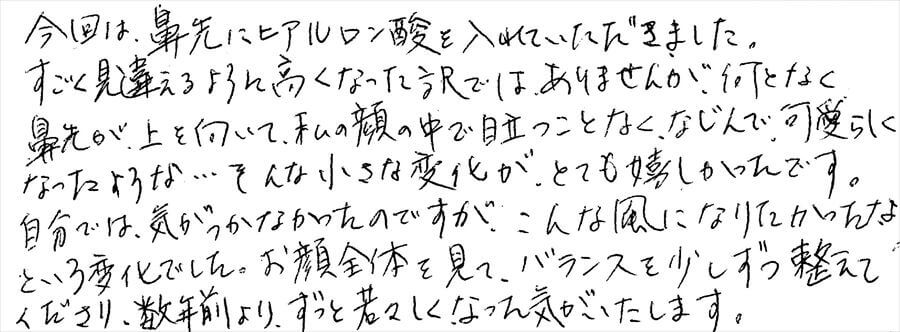 今回は、鼻先にヒアルロン酸を入れていただきました。
すごく見違えるように高くなった訳では、ありませんが、何となく
鼻先が、上を向いて、私の顔の中で目立つことなく、なじんで、可愛らしく
なったような…そんな小さな変化が、とても嬉しかったです。
自分では、気がつかなかったのですが、こんな風になりたかったな
という変化でした。お顔全体を見て、バランスを少しずつ整えて
くださり、数年前より、ずっと若々しくなった気がいたします。